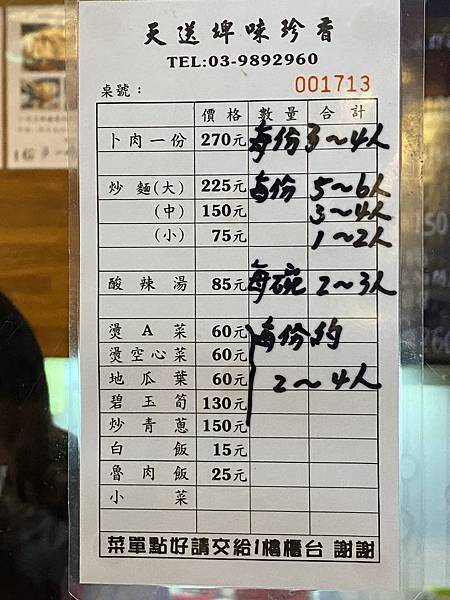 天送埤味珍香
TEL:03-9892960
桌號： 001713
價格 數量 合計
卜肉一份 270元 每份3～4人
炒麵(大) 225元 每份 5～6人
(中) 150元 3～4人
(小) 75元 1～2人
酸辣湯 85元 每碗 2～3人
燙A菜 60元 每份約
燙空心菜 60元
地瓜葉 60元 2～4人
碧玉筍 130元
炒青蔥 150元
白飯 15元
魯肉飯 25元
小菜
菜單點好請交給1檔櫃台 謝謝